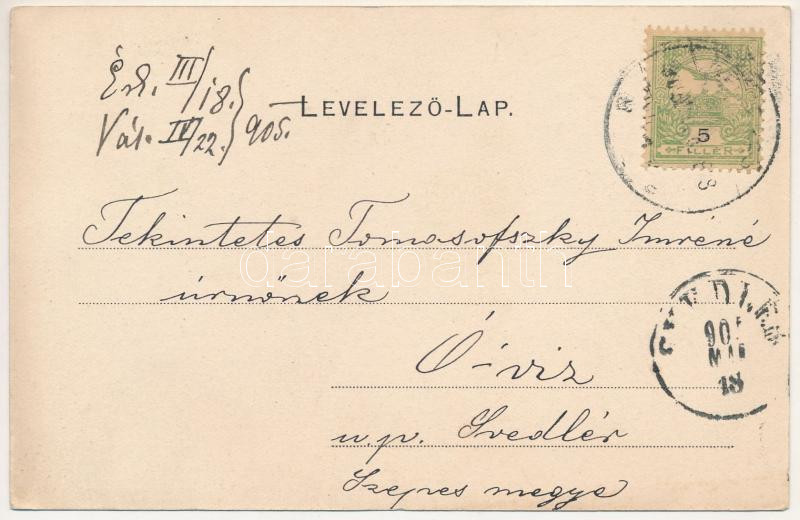 Érk. III/18.
Vál. IV/22. } 905.
LEVELEZŐ-LAP.
5
FILLÉR
Tekintetes Tomasofszky Imréné
úrnőnek
Ó-viz
u. p. Svedlér
Szepes megye
SVEDLÉR
905
MÁR
18
darabanth